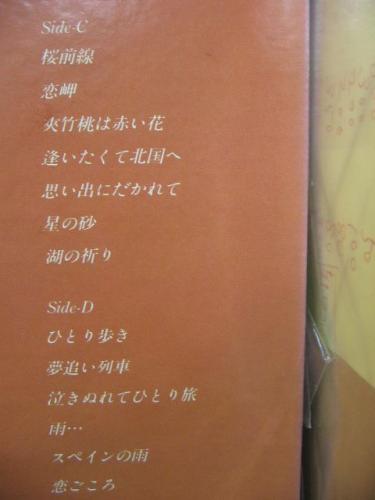 Side-C
桜前線
恋岬
夾竹桃は赤い花
逢いたくて北国へ
思い出にだかれて
星の砂
湖の祈り
Side-D
ひとり歩き
夢追い列車
泣きぬれてひとり旅
雨…
スペインの雨
恋ごころ